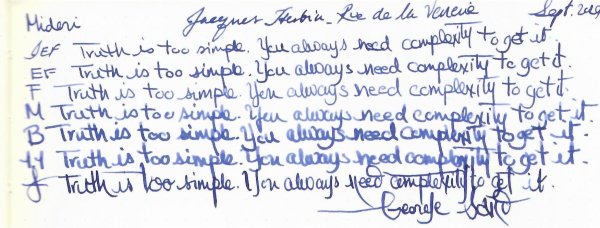 Midori Jacques Herbin - Rue de la Verrerie Sept.
Truth is too simple. You always need complexity to get it.
EF Truth is too simple. You always need complexity to get it.
F Truth is too simple. You always need complexity to get it.
M Truth is too simple. You always need complexity to get it.
B Truth is too simple. You always need complexity to get it.
Truth is too simple. You always need complexity to get it.
Truth is too simple. You always need complexity to get it.
George Sand